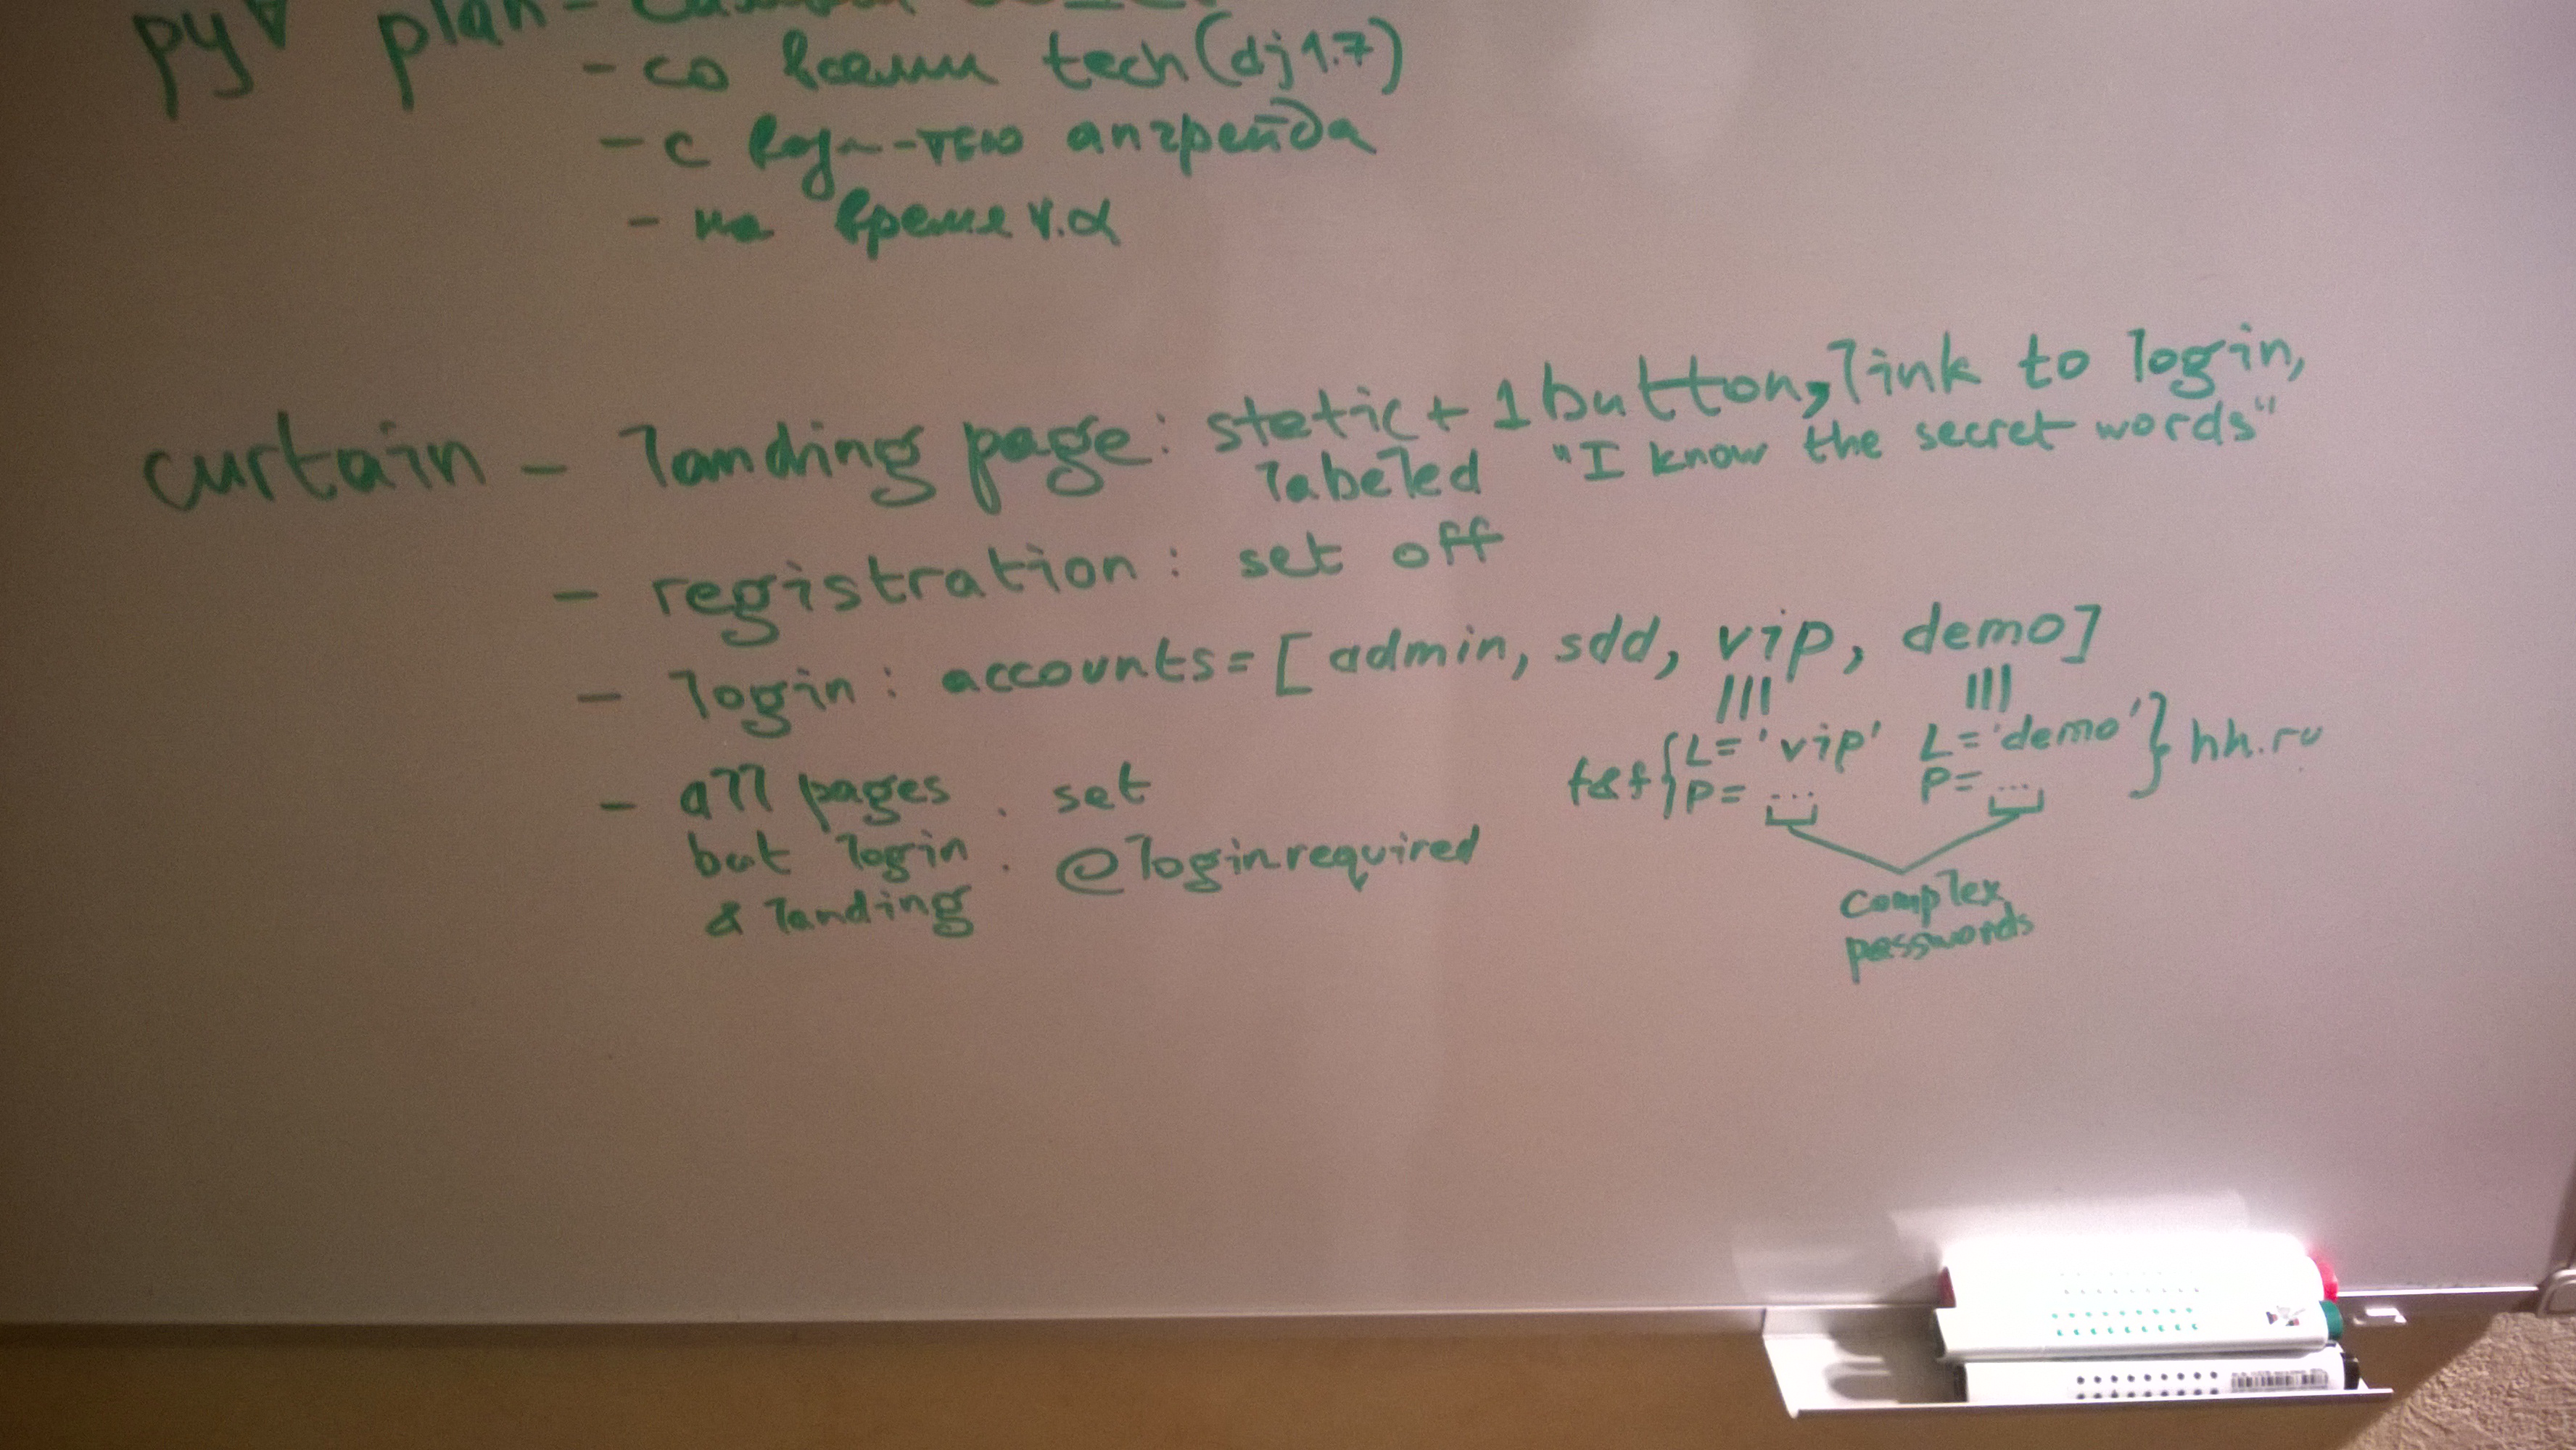 py∀ plan -
- со всеми tech (dj1.7)
- с апгрейда
- на время v.α
curtain - landing page: static + 1 button, link to login,
labeled "I know the secret words"
- registration: set off
- login: accounts = [admin, sdd, vip, demo]
||| |||
f&f { L='vip' L='demo' } hh.ru
P= ... P= ...
complex
passwords
- all pages : set
but login @loginrequired
& landing